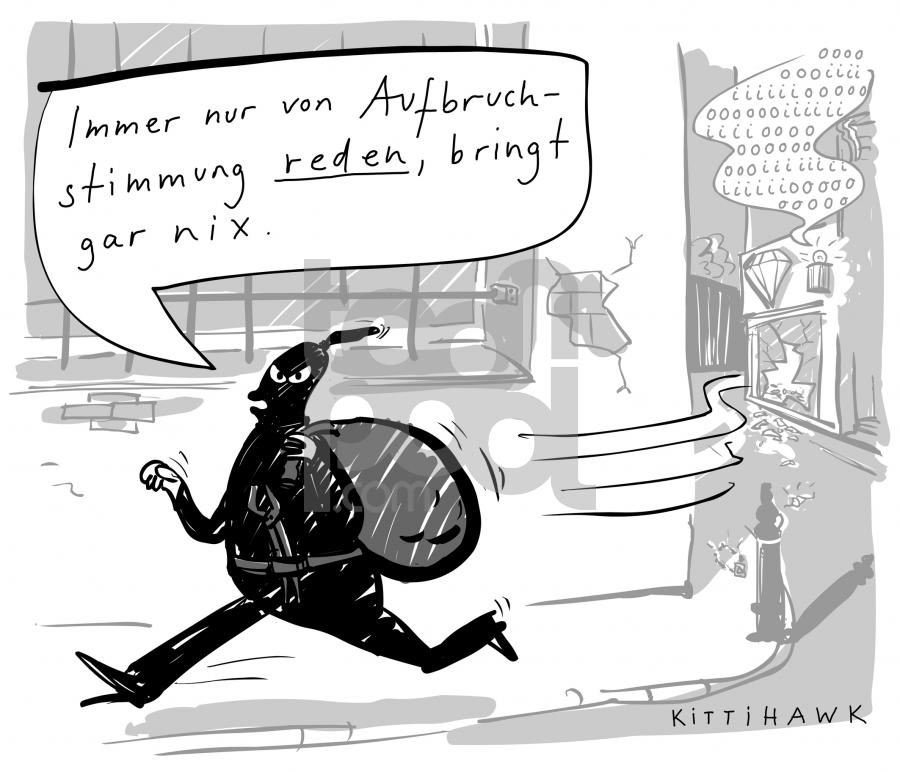 Immer nur von Aufbruch-
stimmung reden, bringt
gar nix.
oooo
oooiiii
iiiiiiooooo
ooooooiiiiiii
iiiiooooo
oooiiiiiiiooo
iiiiiiiooooo
ooooo
toon
pool
.com
KITTIHAWK